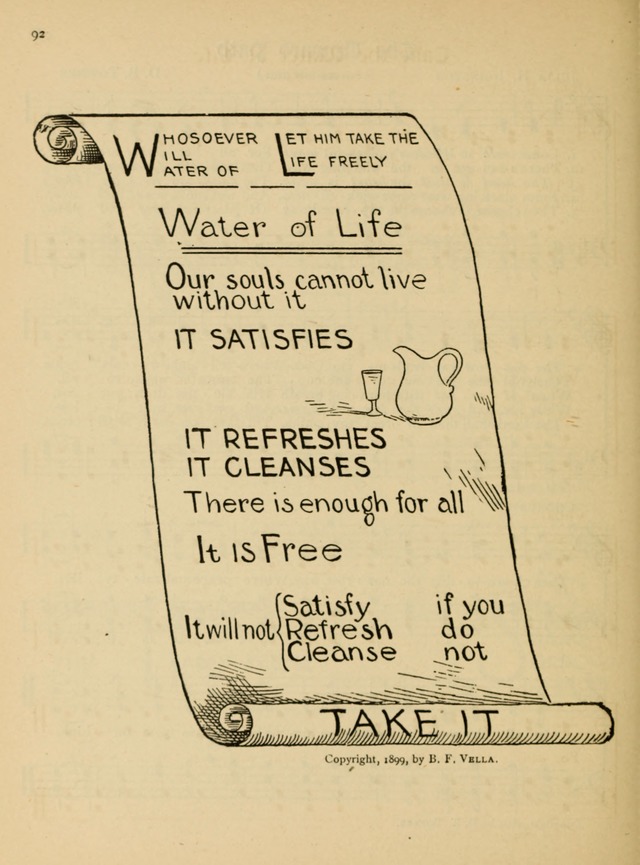 92
WHOSOEVER LET HIM TAKE THE
WILL LIFE FREELY
WATER OF
Water of Life
Our souls cannot live
without it
IT SATISFIES
IT REFRESHES
IT CLEANSES
There is enough for all
It is Free
It will not { Satisfy if you
Refresh do
Cleanse not
TAKE IT
Copyright, 1899, by B. F. VELLA.